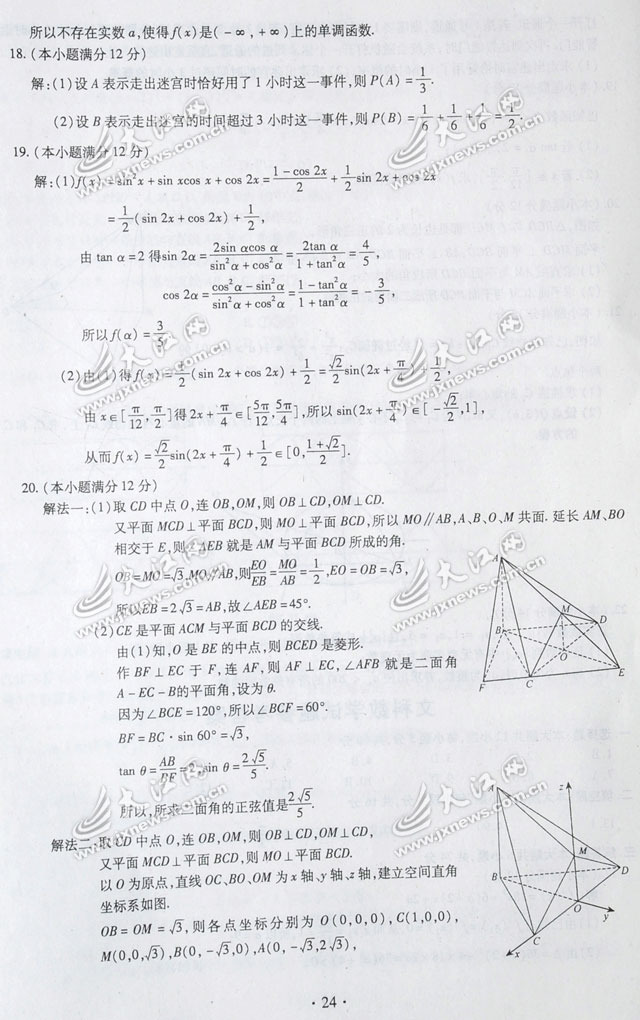 所以不存在实数a,使得f(x)是(-∞,+∞)上的单调函数.
18.(本小题满分12分)
解:(1)设A表示走出迷宫时恰好用了1小时这一事件,则P(A)=1/3.
(2)设B表示走出迷宫的时间超过3小时这一事件,则P(B)=1/6+1/6+1/6=1/2.
19.(本小题满分12分)
解:(1)f(x)=sin²x+sin xcos x+cos 2x=(1-cos 2x)/2+1/2sin 2x+cos 2x
=1/2(sin 2x+cos 2x)+1/2,
由tan α=2得sin 2α=2sin αcos α/(sin²α+cos²α)=2tan α/(1+tan²α)=4/5,
cos 2α=(cos²α-sin²α)/(sin²α+cos²α)=(1-tan²α)/(1+tan²α)=-3/5,
所以f(α)=3/5.
(2)由(1)得f(x)=1/2(sin 2x+cos 2x)+1/2=√2/2sin(2x+π/4)+1/2,
由x∈[π/12,π/2]得2x+π/4∈[5π/12,5π/4],所以sin(2x+π/4)∈[-√2/2,1],
从而f(x)=√2/2sin(2x+π/4)+1/2∈[0,(1+√2)/2].
20.(本小题满分12分)
解法一:(1)取CD中点O,连OB,OM,则OB⊥CD,OM⊥CD.
又平面MCD⊥平面BCD,则MO⊥平面BCD,所以MO∥AB,A、B、O、M共面.延长AM、BO
相交于E,则∠AEB就是AM与平面BCD所成的角.
OB=MO=√3,MO∥AB,则EO/EB=MO/AB=1/2,EO=OB=√3,
所以EB=2√3=AB,故∠AEB=45°.
(2)CE是平面ACM与平面BCD的交线.
由(1)知,O是BE的中点,则BCED是菱形.
作BF⊥EC于F,连AF,则AF⊥EC,∠AFB就是二面角
A-EC-B的平面角,设为θ.
因为∠BCE=120°,所以∠BCF=60°.
BF=BC·sin 60°=√3,
tan θ=AB/BF=2,sin θ=2√5/5.
所以,所求二面角的正弦值是2√5/5.
解法二:取CD中点O,连OB,OM,则OB⊥CD,OM⊥CD,
又平面MCD⊥平面BCD,则MO⊥平面BCD.
以O为原点,直线OC、BO、OM为x轴、y轴、z轴,建立空间直角
坐标系如图.
OB=OM=√3,则各点坐标分别为O(0,0,0),C(1,0,0),
M(0,0,√3),B(0,-√3,0),A(0,-√3,2√3),
A
M
B
D
O
F
C
E
A
z
M
B
D
O
y
C
x
·24·
大江网
www.jxnews.com.cn